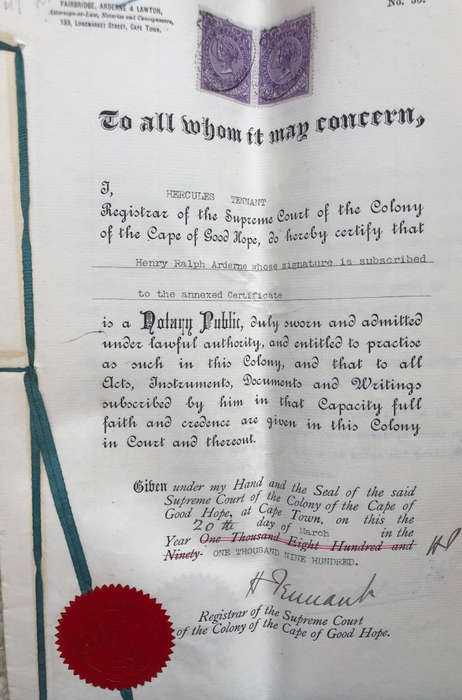 No. 50.
FAIRBRIDGE, ARDERNE & LAWTON,
Attorneys-at-Law, Notaries and Conveyancers,
133, LONGMARKET STREET, CAPE TOWN.
To all whom it may concern,
I, HERCULES TENNANT
Registrar of the Supreme Court of the Colony
of the Cape of Good Hope, do hereby certify that
Henry Ralph Arderne whose signature is subscribed
to the annexed Certificate
is a Notary Public, duly sworn and admitted
under lawful authority, and entitled to practise
as such in this Colony, and that to all
Acts, Instruments, Documents and Writings
subscribed by him in that Capacity full
faith and credence are given in this Colony
in Court and thereout.
Given under my Hand and the Seal of the said
Supreme Court of the Colony of the Cape of
Good Hope, at Cape Town, on this the
20th day of March in the
Year One Thousand Eight Hundred and
Ninety- ONE THOUSAND NINE HUNDRED.
HT
H Tennant
Registrar of the Supreme Court
of the Colony of the Cape of Good Hope.